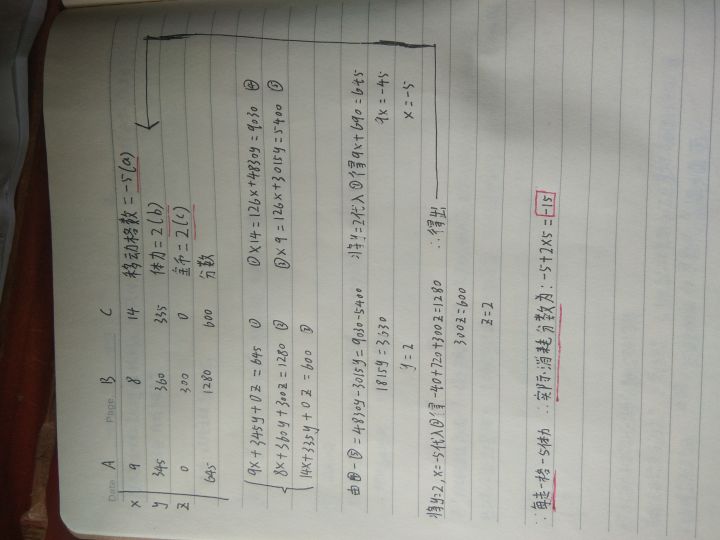 Date A Page B C
x 9 8 14 移动格数=-5(a)
y 345 360 335 体力=2(b)
z 0 300 0 金币=2(c)
645 1280 600 分数
9x+345y+0z=645 ① ①×14=126x+4830y=9030 ④
8x+360y+300z=1280 ② ③×9=126x+3015y=5400 ⑤
14x+335y+0z=600 ③
由④-⑤=4830y-3015y=9030-5400 将y=2代入①得9x+690=645
1815y=3630 9x=-45
y=2 x=-5
将y=2,x=-5代入②得-40+720+300z=1280 ∴得出
300z=600
z=2
∵每走一格-5体力 ∴实际消耗分数为:-5+2×5=-15